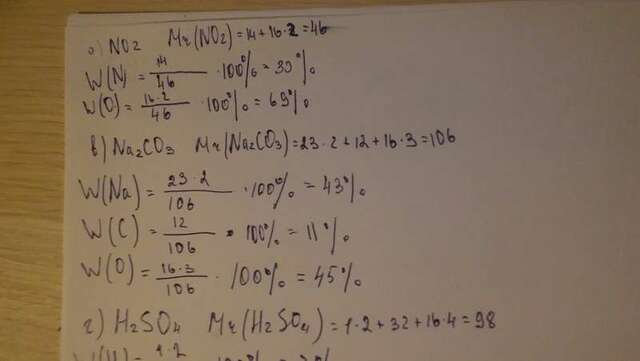 б) NO2 Mr(NO2)=14+16·2=46
W(N)=14/46 ·100%=30%
W(O)=16·2/46 ·100%=69%
в) Na2CO3 Mr(Na2CO3)=23·2+12+16·3=106
W(Na)=23·2/106 ·100%=43%
W(C)=12/106 · 100%=11%
W(O)=16·3/106 · 100%=45%
г) H2SO4 Mr(H2SO4)=1·2+32+16·4=98
1·2